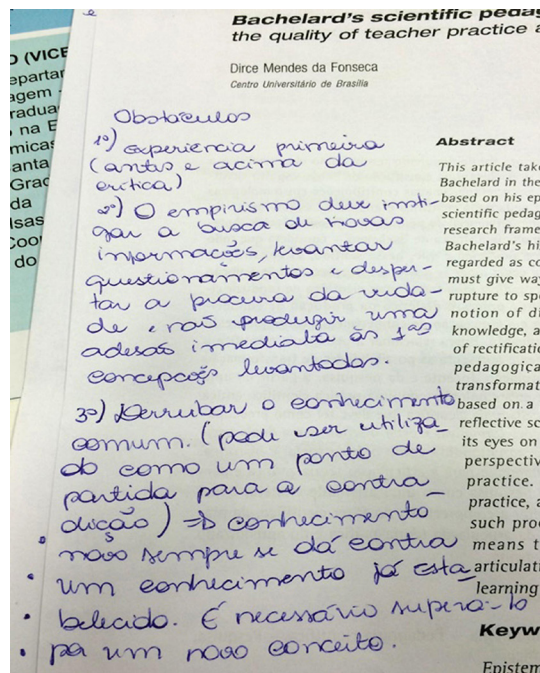 Bachelard's scientific pedag
the quality of teacher practice a
Dirce Mendes da Fonseca
Centro Universitário de Brasília
O (VICE
epartar
agem -
radua
na E
micas
anta
Grac
da
lsas
Coor
do
Obstáculos
1º) experiência primeira
(antes e acima da
crítica)
2º) O empirismo deve insti-
gar a busca de novas
informações, levantar
questionamentos e desper-
tar a procura da verda-
de e não produzir uma
adesão imediata às 1ªs
concepções levantadas.
3º) Derrubar o conhecimento
comum. (pode ser utiliza_
do como um ponto de
partida para a contra_
dição) => conhecimento
novo sempre se dá contra
um conhecimento já esta_
belecido. É necessário superá-lo
por um novo conceito.
Abstract
This article take
Bachelard in the
based on his ep
scientific pedag
research frame
Bachelard's hi
regarded as co
must give way
rupture to sp
notion of di
knowledge, a
of rectificati
pedagogica
transformat
based on a
reflective sc
its eyes on
perspectiv
practice.
practice, a
such pro
means t
articulati
learning
Keyw
Epistem